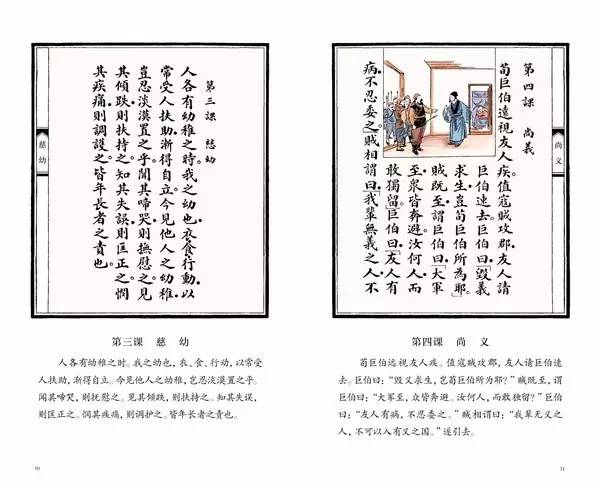 第三課 慈幼
人各有幼稚之時。我之幼也。衣食行動。以
常受人扶助。漸得自立。今見他人之幼稚。
豈忍淡漠置之乎。聞其啼哭。則撫慰之。見
其傾跌。則扶持之。知其失誤。則匡正之。憫
其疾痛。則調護之。皆年長者之責也。
慈幼
第三课 慈 幼
人各有幼稚之时。我之幼也，衣、食、行动，以常受
人扶助，渐得自立。今见他人之幼稚，岂忍淡漠置之乎。
闻其啼哭，则抚慰之。见其倾跌，则扶持之。知其失误，
则匡正之。悯其疾痛，则调护之。皆年长者之责也。
10
第四課 尚義
荀巨伯遠視友人疾。值寇賊攻郡。友人請
巨伯速去。巨伯曰。「毀義
求生。豈荀巨伯所為耶。」
賊既至。謂巨伯曰。「大軍
至。衆皆奔避。汝何人。而
敢獨留。」巨伯曰。「友人有
病。不忍委之。」賊相謂曰。「我輩無義之人。不
尚义
第四课 尚 义
荀巨伯远视友人疾。值寇贼攻郡，友人请巨伯速
去。巨伯曰：“毁义求生，岂荀巨伯所为耶？”贼既至，谓
巨伯曰：“大军至，众皆奔避。汝何人，而敢独留？”巨伯
曰：“友人有病，不忍委之。”贼相谓曰：“我辈无义之
人，不可以入有义之国。”遂引去。
11